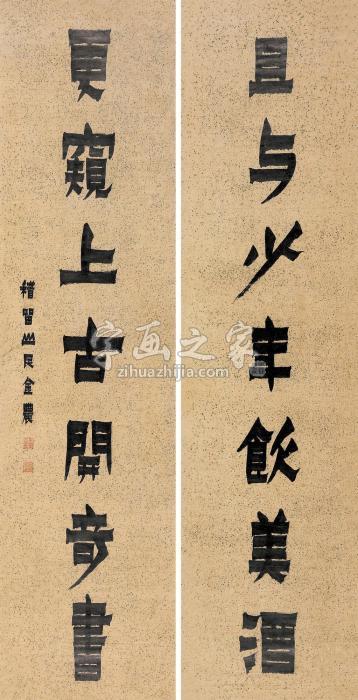 且与少年飲美酒
更窺上古開奇書
稽留山民金農
字画之家
zihuazhijia.com